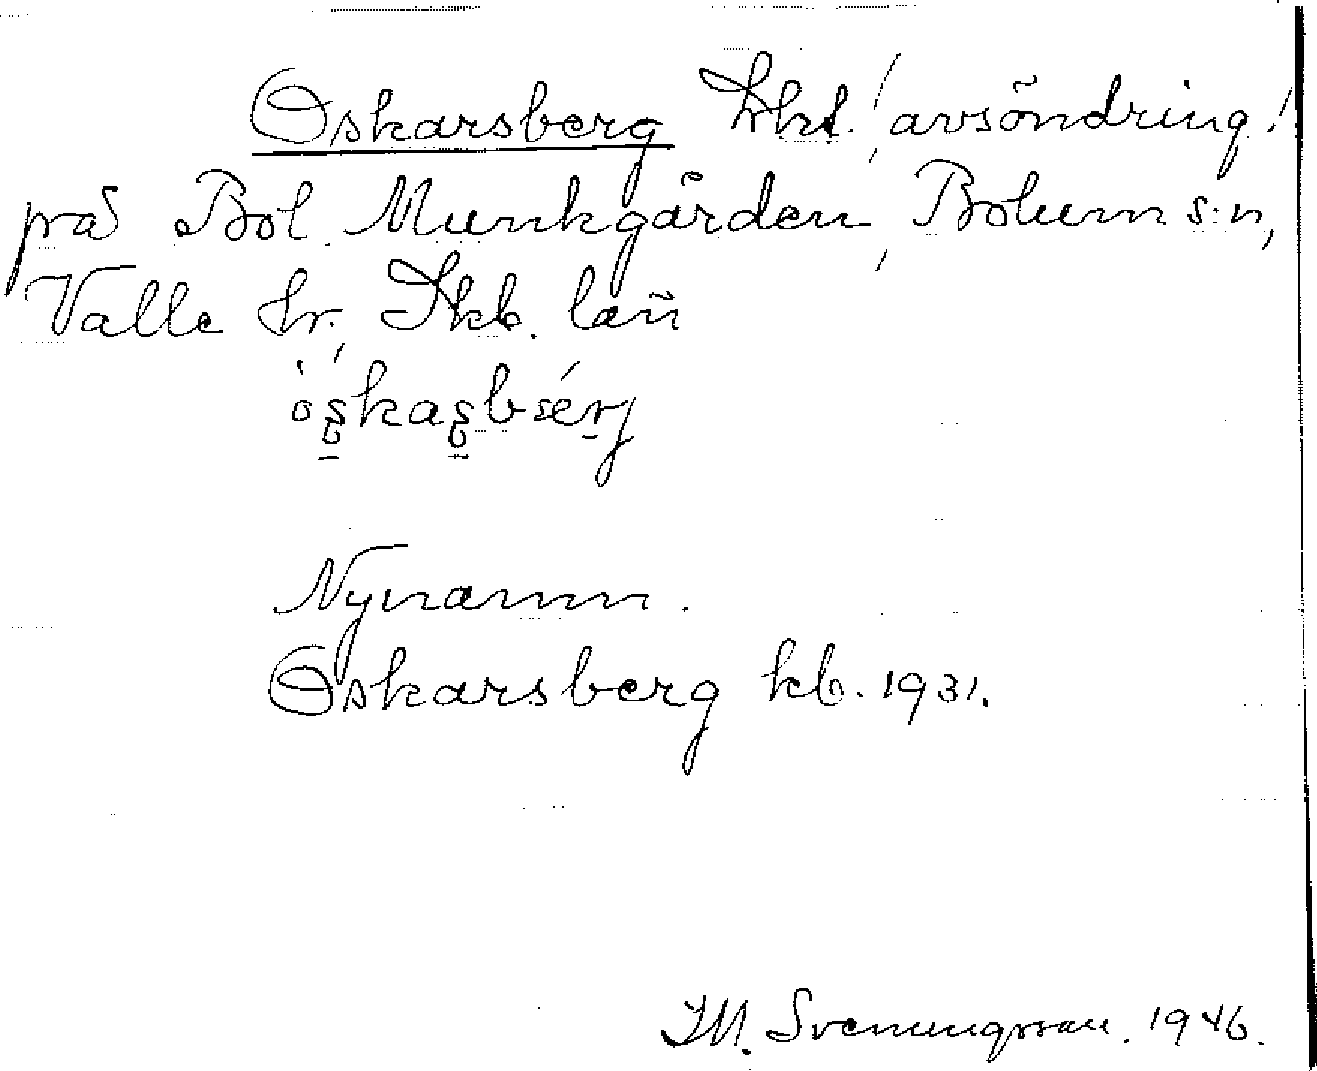 Oskarsberg lht. /avsöndring/
på Bol Munkgården, Bolum s:n,
Valle hr, Skb. län
Nynamn.
Oskarsberg kb. 1931.
Svenungsson. 1946.